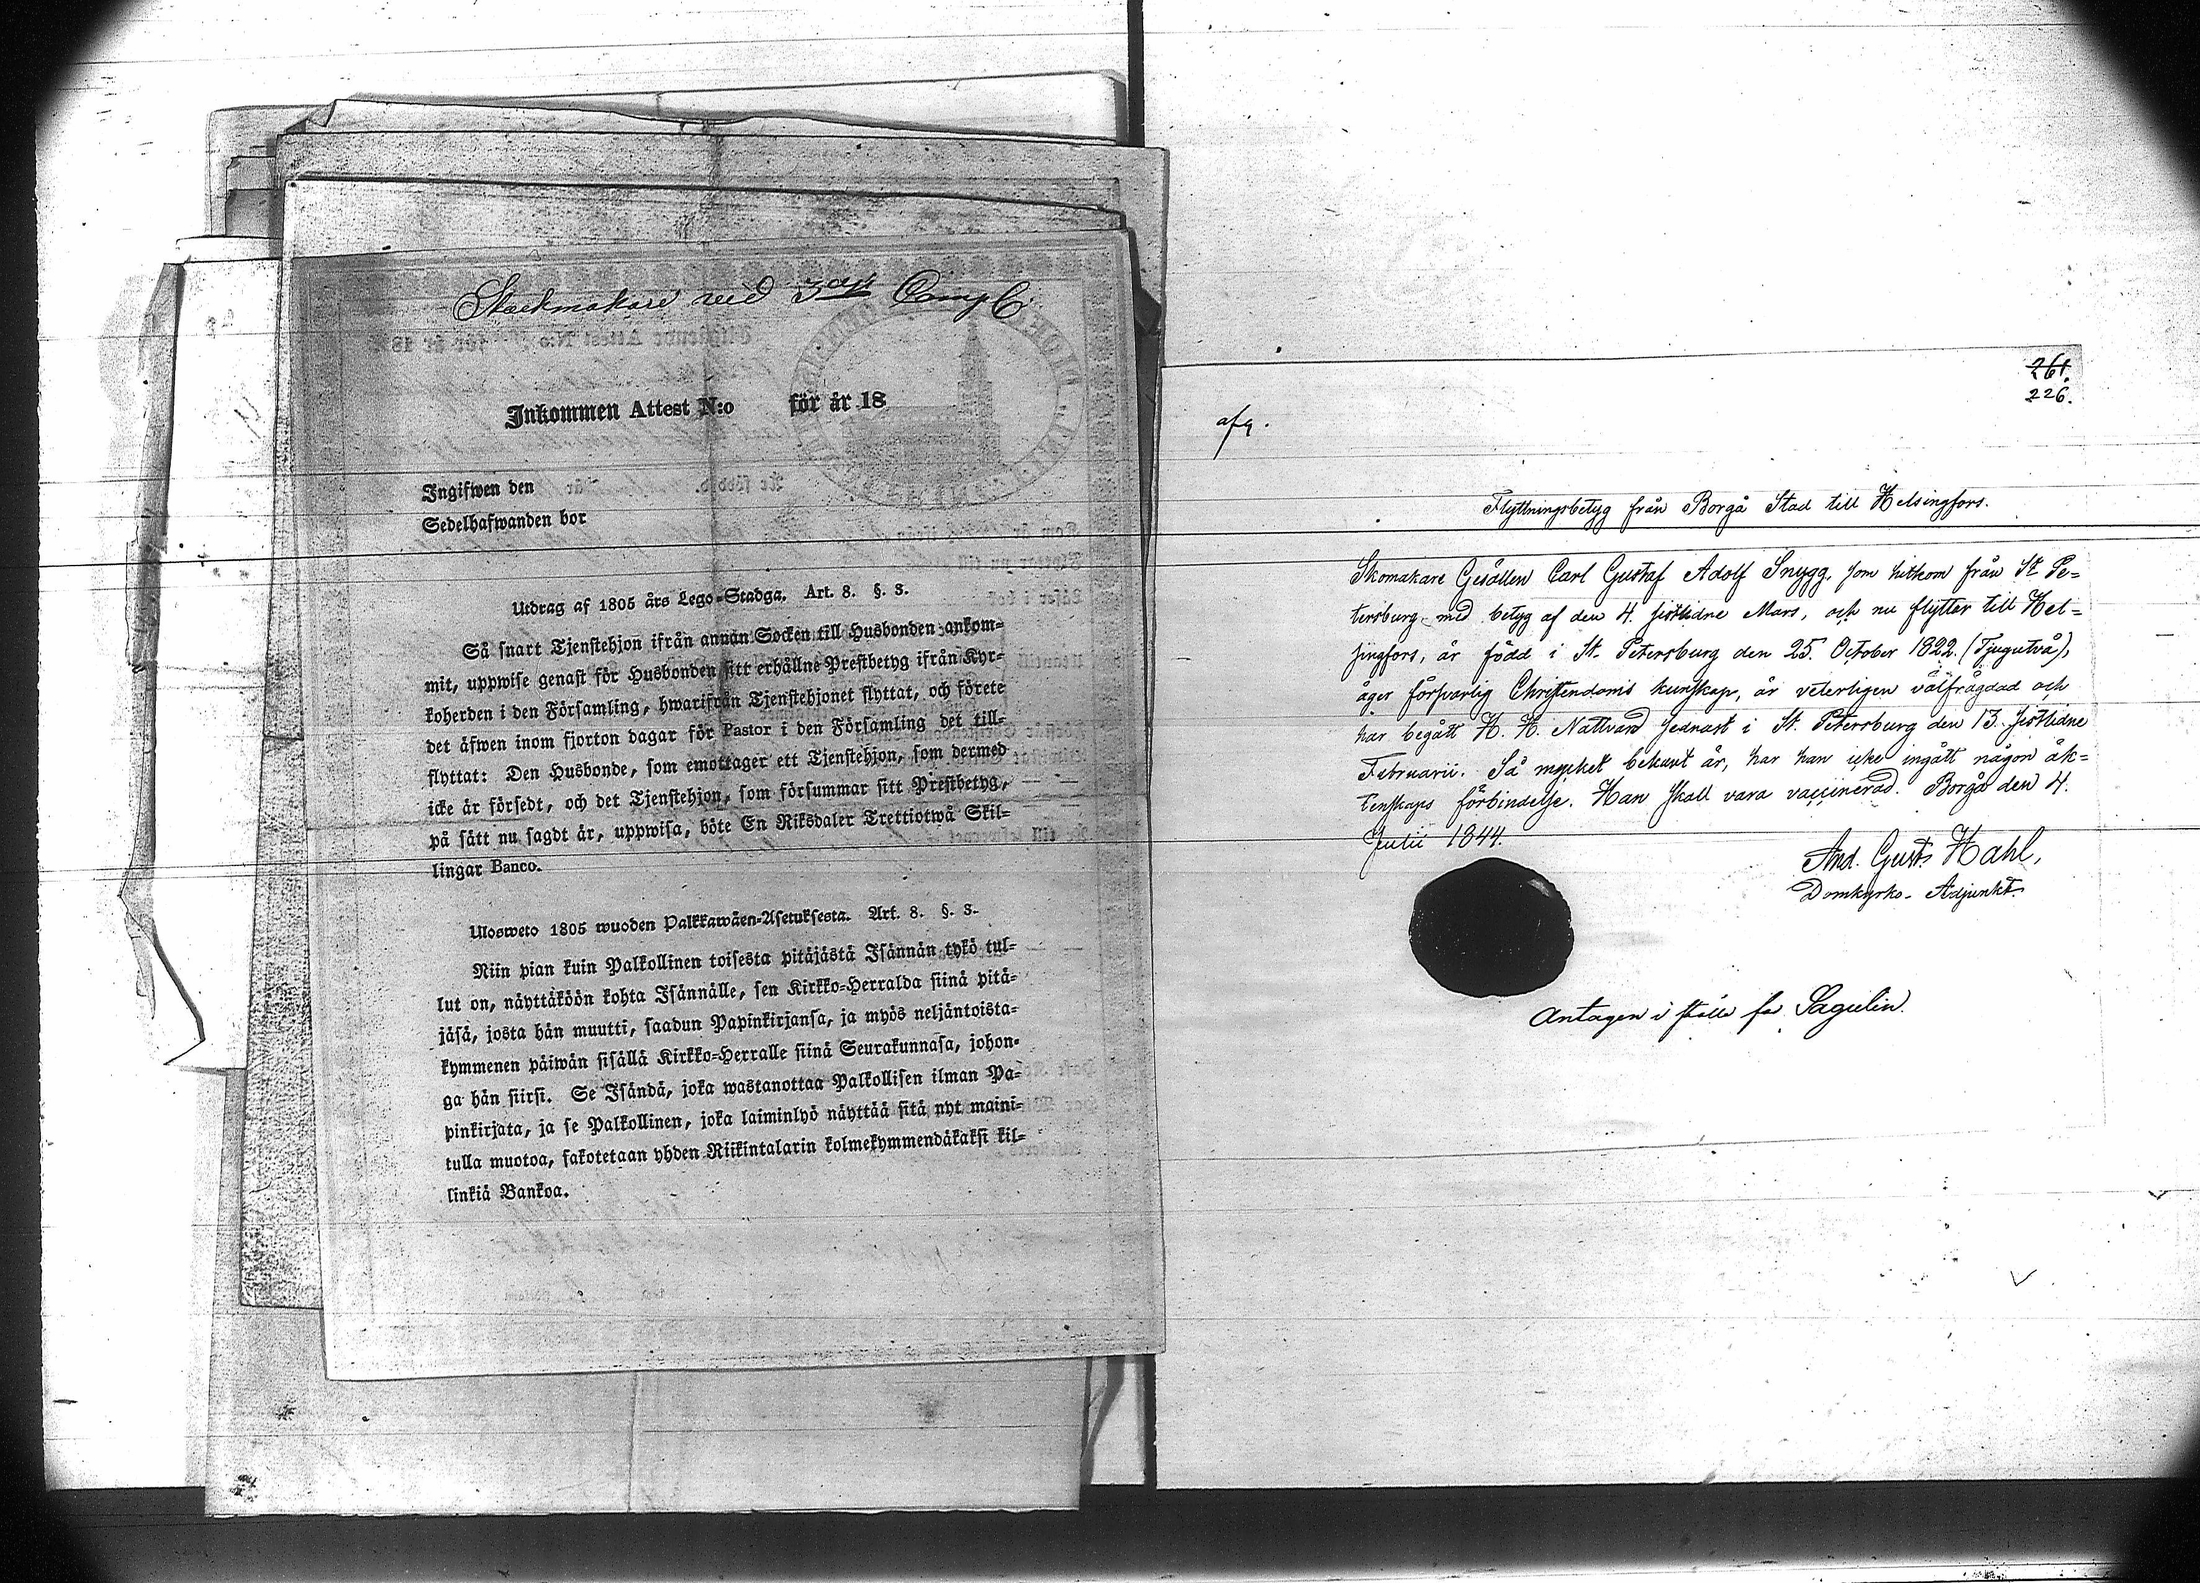 Stockmakare vid 3dje Comp C.
Inkommen Attest N:o för år 18
Ingifwen den
Sedelhafwanden bor
Utdrag af 1805 års Lego-Stadga. Art. 8. §. 3.
Så snart Tjenstehjon ifrån annan Socken till Husbonden ankom-
mit, uppwise genast för Husbonden sitt erhållne Prestbetyg ifrån Kyr-
koherden i den Församling, hwarifrån Tjenstehjonet flyttat, och förete
det äfwen inom fjorton dagar för Pastor i den Församling det till-
flyttat: Den Husbonde, som emottager ett Tjenstehjon, som dermed
icke är försedt, och det Tjenstehjon, som försummar sitt Prestbetyg,
på sätt nu sagdt är, uppwisa, böte En Riksdaler Trettiotwå Skil-
lingar Banco.
Ulosweto 1805 wuoden Palkkawäen-Asetuksesta. Art. 8. §. 3.
Niin pian kuin Palkollinen toisesta pitäjästä Isännän tykö tul-
lut on, näyttäköön kohta Isännälle, sen Kirkko-Herralda siinä pitä-
jäsä, josta hän muutti, saadun Papinkirjansa, ja myös neljäntoista-
kymmenen päiwän sisällä Kirkko-Herralle siinä Seurakunnasa, johon-
ga hän siirsi. Se Isändä, joka wastanottaa Palkollisen ilman Pa-
pinkirjata, ja se Palkollinen, joka laiminlyö näyttää sitä nyt maini-
tulla muotoa, sakotetaan yhden Riikintalarin kolmekymmendäkaksi kil-
linkiä Bankoa.
261.
226.
afg.
Flyttningsbetyg från Borgå Stad till Helsingfors.
Skomakare Gesällen Carl Gustaf Adolf Snygg, som hitkom från St. Pe=
tersburg med betyg af den 4. sistlidne Mars, och nu flytter till Hel=
singfors, är född i St. Petersburg den 25. October 1822. (Tjugutvå),
äger försvarlig Christendoms kunskap, är veterligen välfrägdad och
har begått H. H. Nattvard sednast i St. Petersburg den 13. sistlidne
Februarii. Så mycket bekant är, har han icke ingått någon äk=
tenskaps förbindelse. Han skall vara vaccinerad. Borgå den 4.
Julii 1844.
And. Gust. Hahl,
Domkyrko-Adjunkt.
Antagen i ställe för Sagulin.